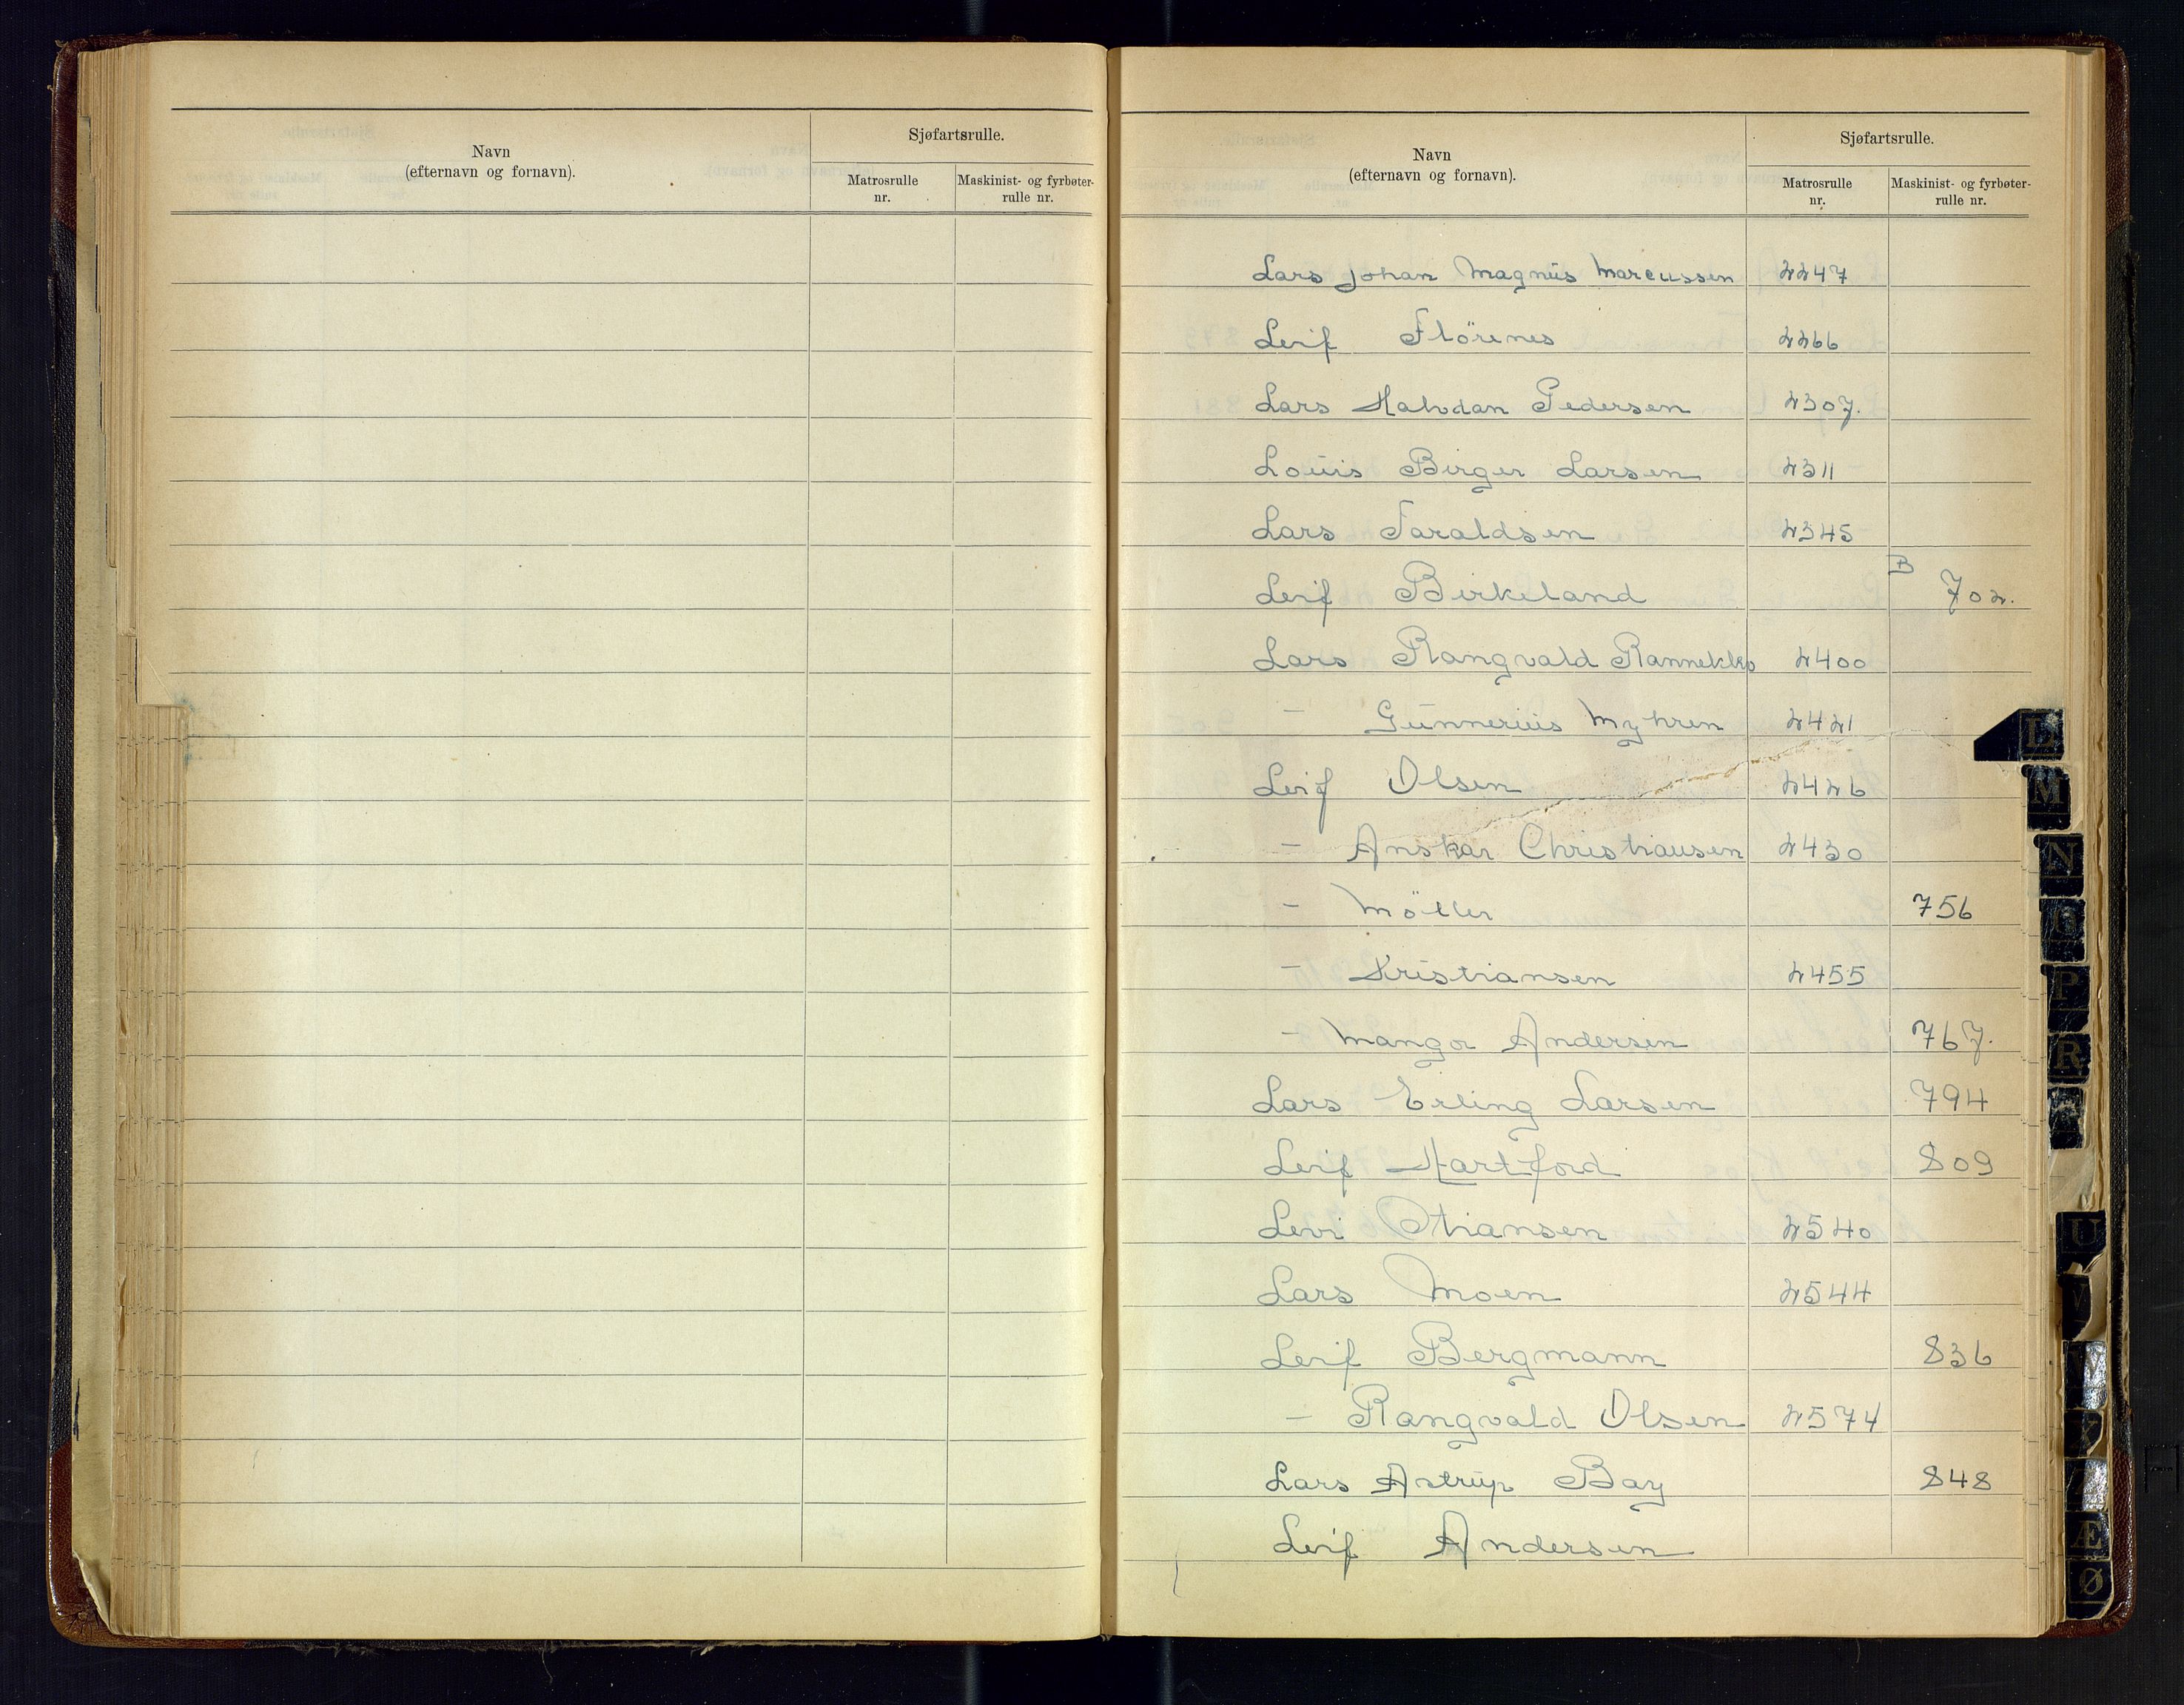 Navn
(efternavn og fornavn).
Sjøfartsrulle.
Matrosrulle
nr.
Maskinist- og fyrbøter-
rulle nr.
Navn
(efternavn og fornavn).
Sjøfartsrulle.
Matrosrulle
nr.
Maskinist- og fyrbøter-
rulle nr.
Lars Johan Magnus Marcussen 2247
Leif Flörenes 2266
Lars Halvdan Pedersen 2307.
Louis Birger Larsen 2311
Lars Taraldsen 2345
Leif Birkeland B 702.
Lars Rangvald 2400
– Gunnerius Myhren 2421
Leif Olsen 2426
– Anskar Christiansen 2430
– Möller 756
– Kristiansen 2455
– Mangor Andersen 767.
Lars Erling Larsen 794
Leif Hartford 809
Levi Stiansen 2540
Lars Moen 2544
Leif Bergmann 836
– Rangvald Olsen 2574
Lars Astrup Bay 848
Leif Andersen
L
M
N
P
R
U
V
X
Æ
Ø